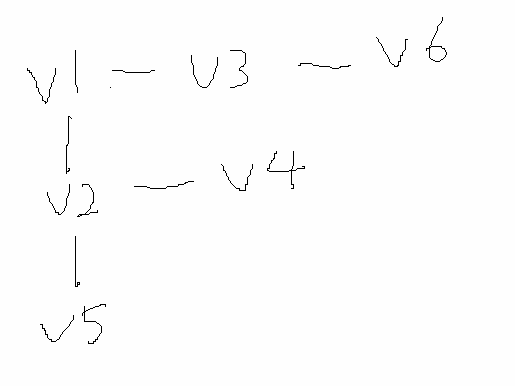 V1 — V3 — V6
|
V2 — V4
|
V5